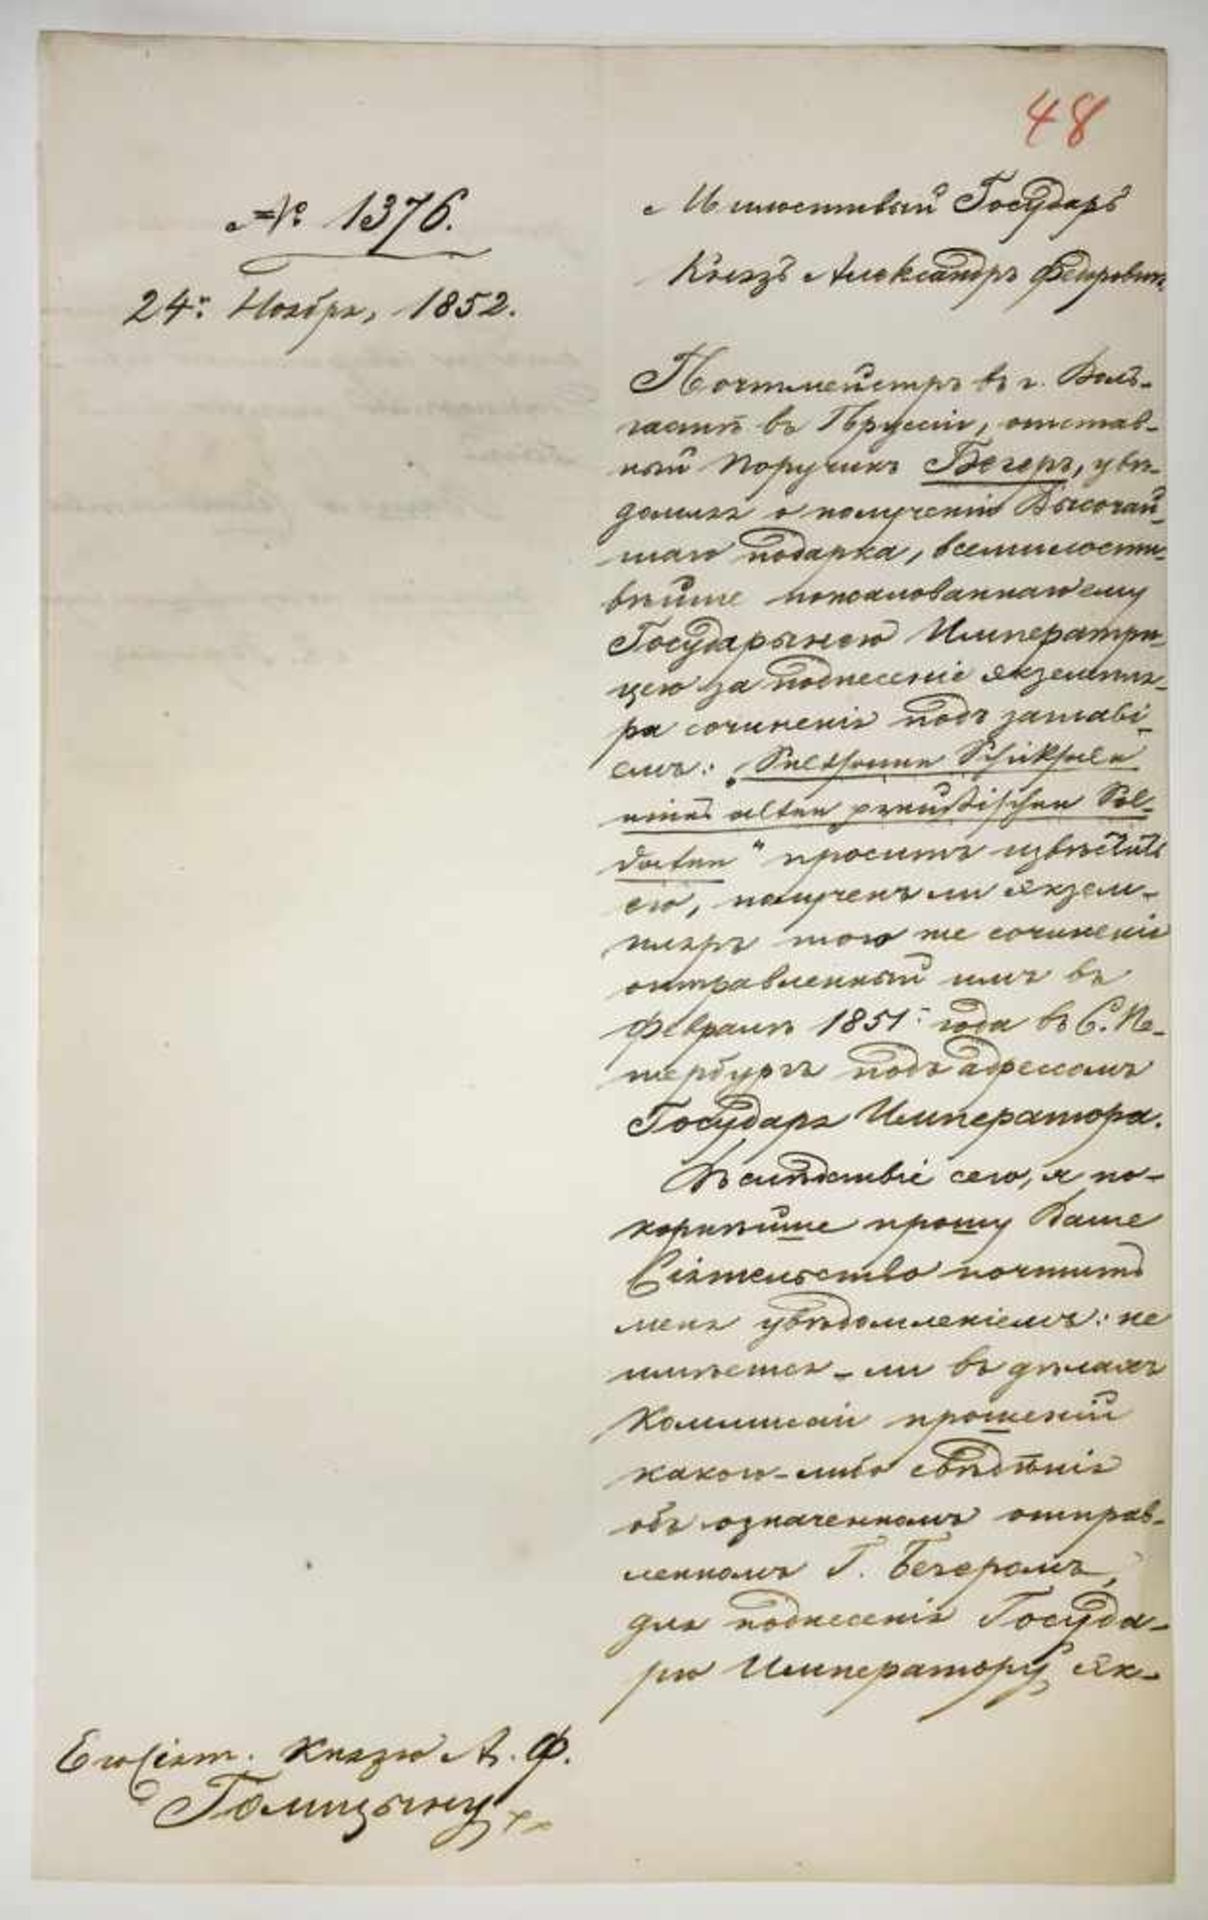 48
№ 1376.
24го Ноября, 1852.
Милостивый Государь
Князь Александръ Федоровичъ
Почтмейстръ въ г. Воль-
гастѣ въ Пруссіи, отстав-
ный поручикъ Бегеръ, увѣ-
домляя о полученіи Высочай-
шаго подарка, всемилости-
вѣйше пожалованнаго ему
Государынею Императри-
цею за поднесеніе экземпля-
ра сочиненія подъ заглаві-
емъ: „Seltsame Schicksale
eines alten preußischen Sol-
daten" проситъ извѣстить
его, полученъ ли экзем-
пляръ того же сочиненія
отправленный имъ въ
Февралѣ 1851 года въ С. Пе-
тербургъ подъ адрессомъ
Государя Императора.
Вслѣдствіе сего, я по-
корнѣйше прошу Ваше
Сіятельство почтить
меня увѣдомленіемъ: не
имѣется-ли въ дѣлахъ
Коммисіи прошеній
какого-либо свѣдѣнія
объ означенномъ отправ-
ленномъ Г. Бегеромъ,
для поднесенія Госуда-
рю Императору, эк-
Его Сіят. Князю А. Ф.
Голицыну